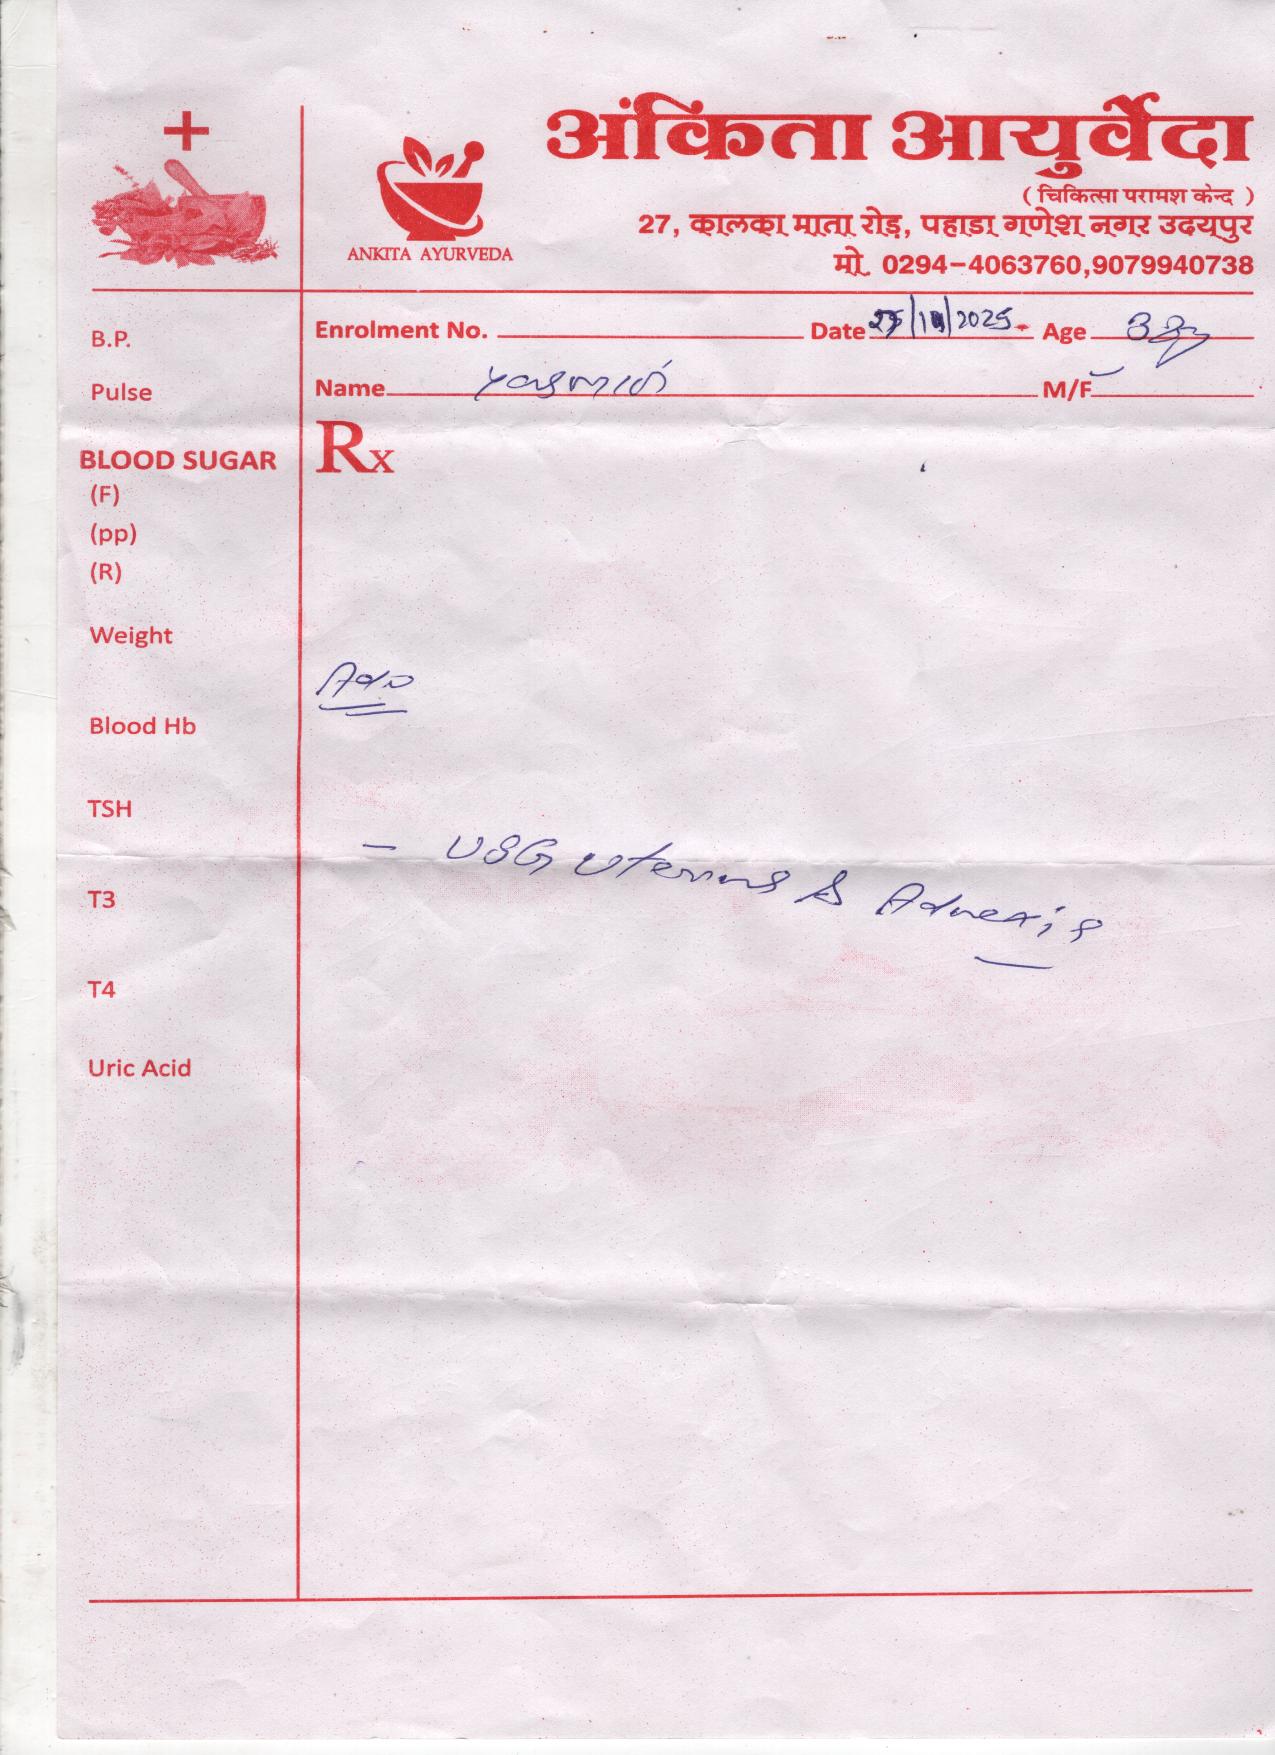 अंकिता आयुर्वेदा
( चिकित्सा परामश केन्द )
27, कालका माता रोड़, पहाडा गणेश नगर उदयपुर
मो. 0294-4063760,9079940738
ANKITA AYURVEDA
Enrolment No. Date /2025 Age
Name M/F
B.P.
Pulse
Rx
BLOOD SUGAR
(F)
(pp)
(R)
Weight
Adv
Blood Hb
TSH
- USG uterus & Adnexis
T3
T4
Uric Acid